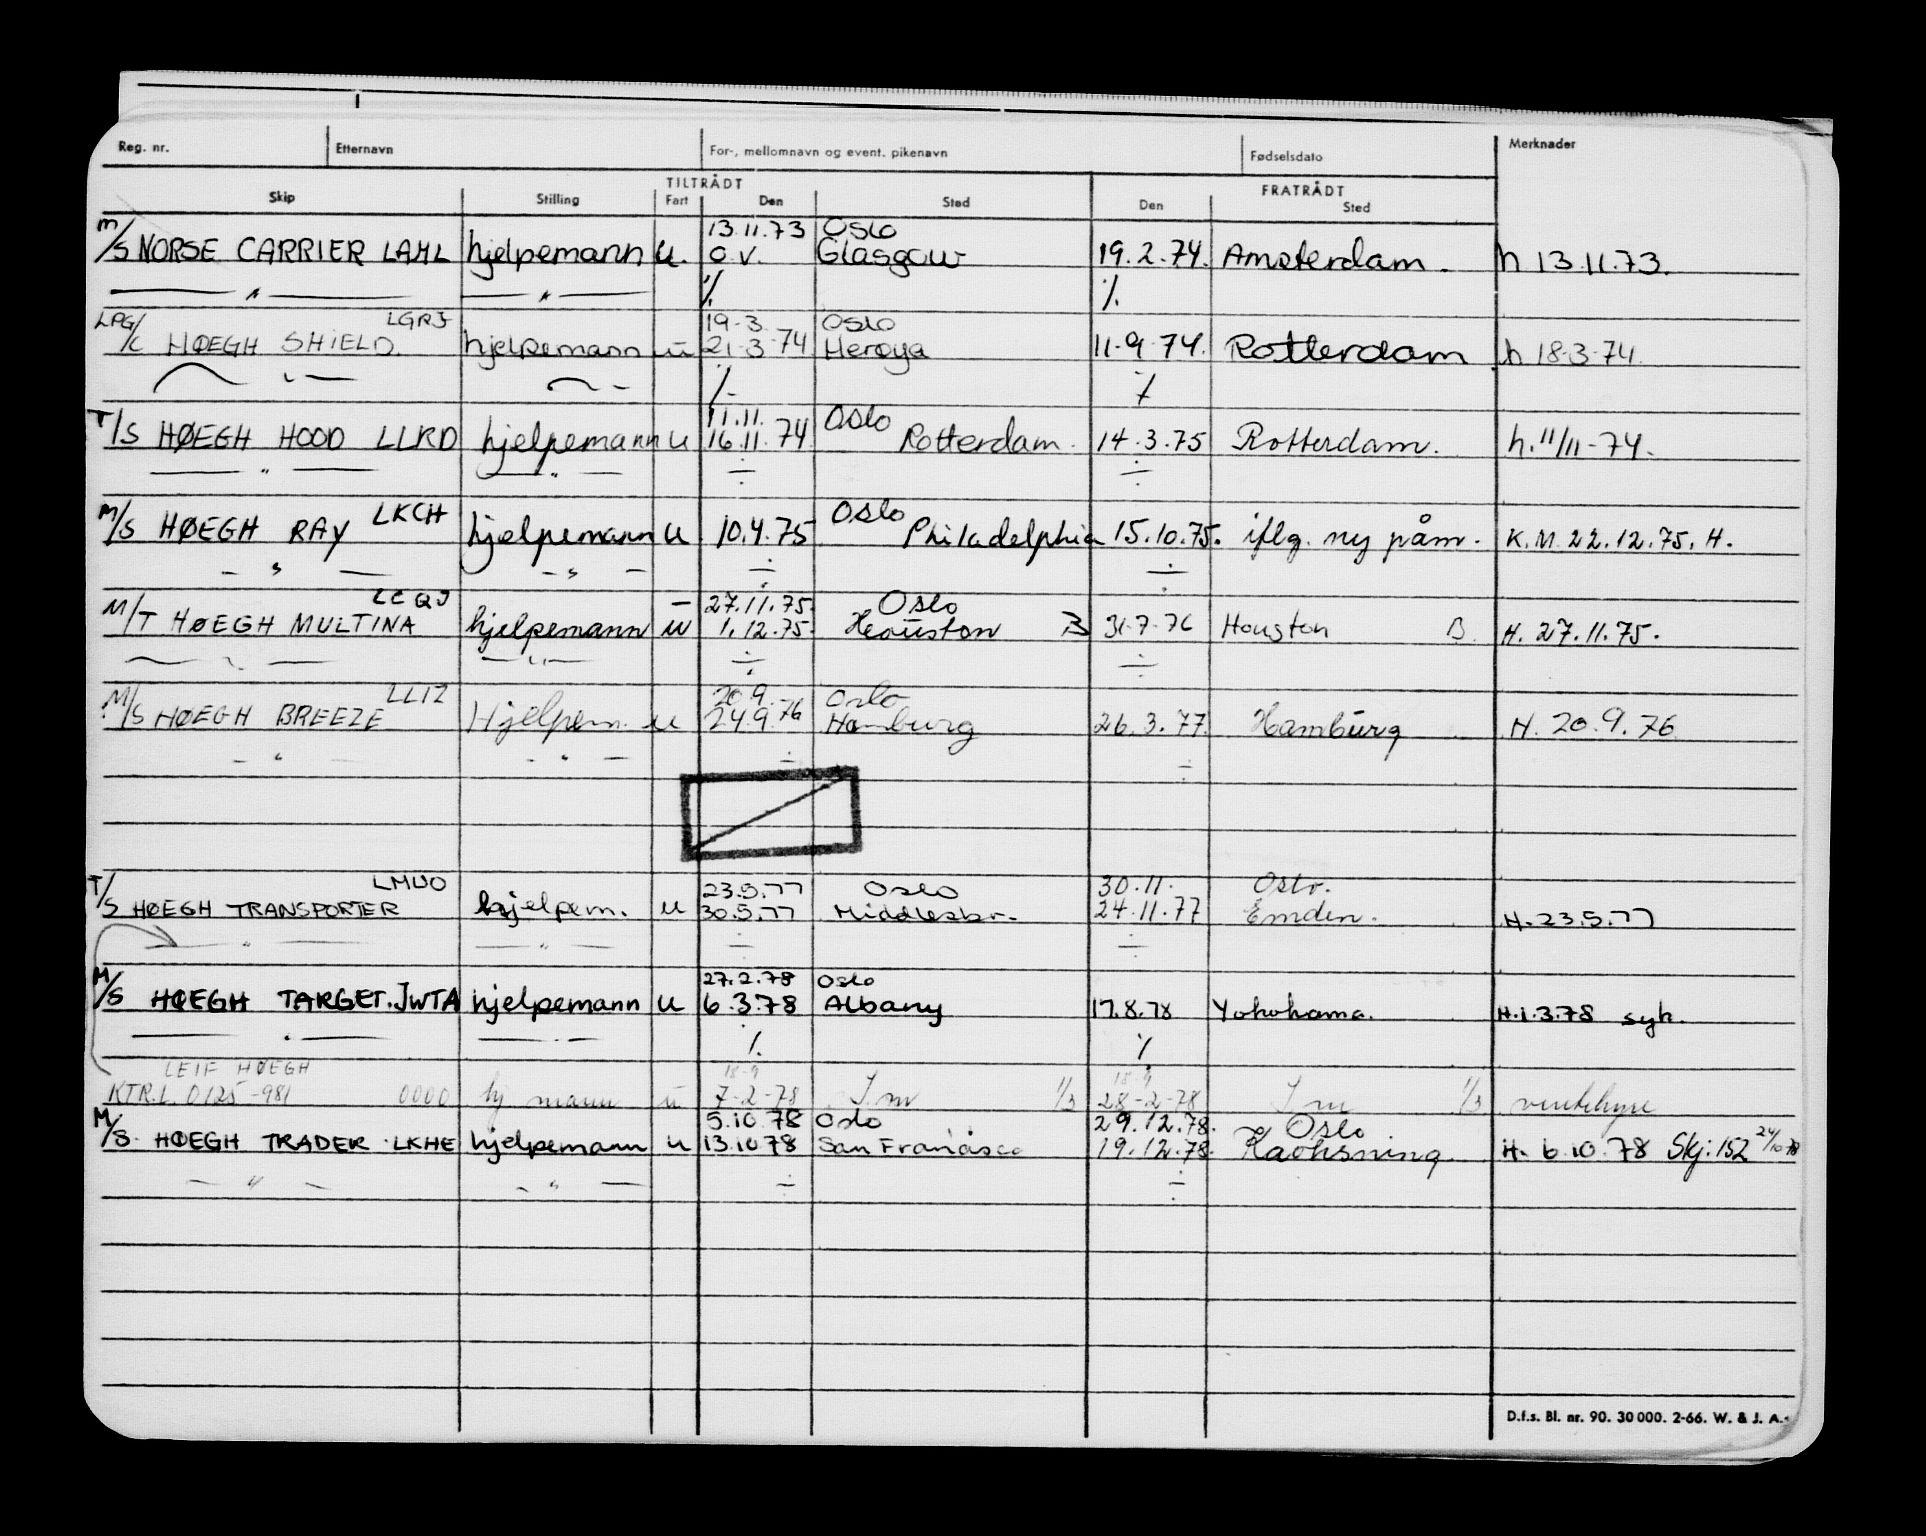 Reg. nr. Etternavn For-, mellomnavn og event. pikenavn Fødselsdato Merknader
TILTRÅDT FRATRÅDT
Skip Stilling Fart Den Sted Den Sted
13.11.73 Oslo
M/S NORSE CARRIER LAHL hjelpemann u. o.v. Glasgow 19.2.74. Amsterdam. h 13.11.73.
— " — — " — % %
LGRJ 19-3 Oslo
LPG/C HØEGH SHIELD. hjelpemann u 21-3-74 Herøya 11-9-74. Rotterdam h 18-3-74.
— " — — " — /- /
11.11. Oslo
T/S HØEGH HOOD LLRD hjelpemann u 16.11.74. Rotterdam. 14.3.75 Rotterdam. h. 11/11-74.
— " — — " — ÷ ÷
LKCH Oslo
M/S HØEGH RAY hjelpemann u 10.4.75 Philadelphia 15.10.75. iflg. ny påm. K.M. 22.12.75. H.
— " — — " — ÷ ÷
LEQJ — 27.11.75. Oslo
M/T HØEGH MULTINA hjelpemann u 1.12.75. Houston B 31-7-76 Houston B H. 27.11.75.
— " — — " — ÷ ÷
LLIZ 20.9. Oslo
M/S HØEGH BREEZE Hjelpem. u 24.9.76 Hamburg 26.3.77. Hamburg H. 20.9.76
— " — — " — ÷ ÷
LMUO 23.5.77 Oslo 30.11. Oslo.
T/S HØEGH TRANSPORTER hjelpem. u 30.5.77 Middlesbr. 24.11.77 Emden. H. 23.5.77
— " — — " — ÷ ÷
27.2.78 Oslo
M/S HØEGH TARGET. JWTA hjelpemann u 6.3.78 Albany 17.8.78 Yokohama. H. 1.3.78 syk.
— " — — " — % %
LEIF HØEGH 18-9 18-9
KTR.L. 0125-981 0000 hj mann u 7-2-78 I m 1/3 28-2-78 I m 1/3 ventehyre
5.10.78 Oslo 29.12.78. Oslo
M/S. HØEGH TRADER LKHE hjelpemann u 13.10.78 San Francisco 19.12.78. Kaohsiung H. 6.10.78 Skj: 152 24/10-78
— " — — " — ÷ ÷
D.f.s. Bl. nr. 90. 30 000. 2-66. W. & J. A.